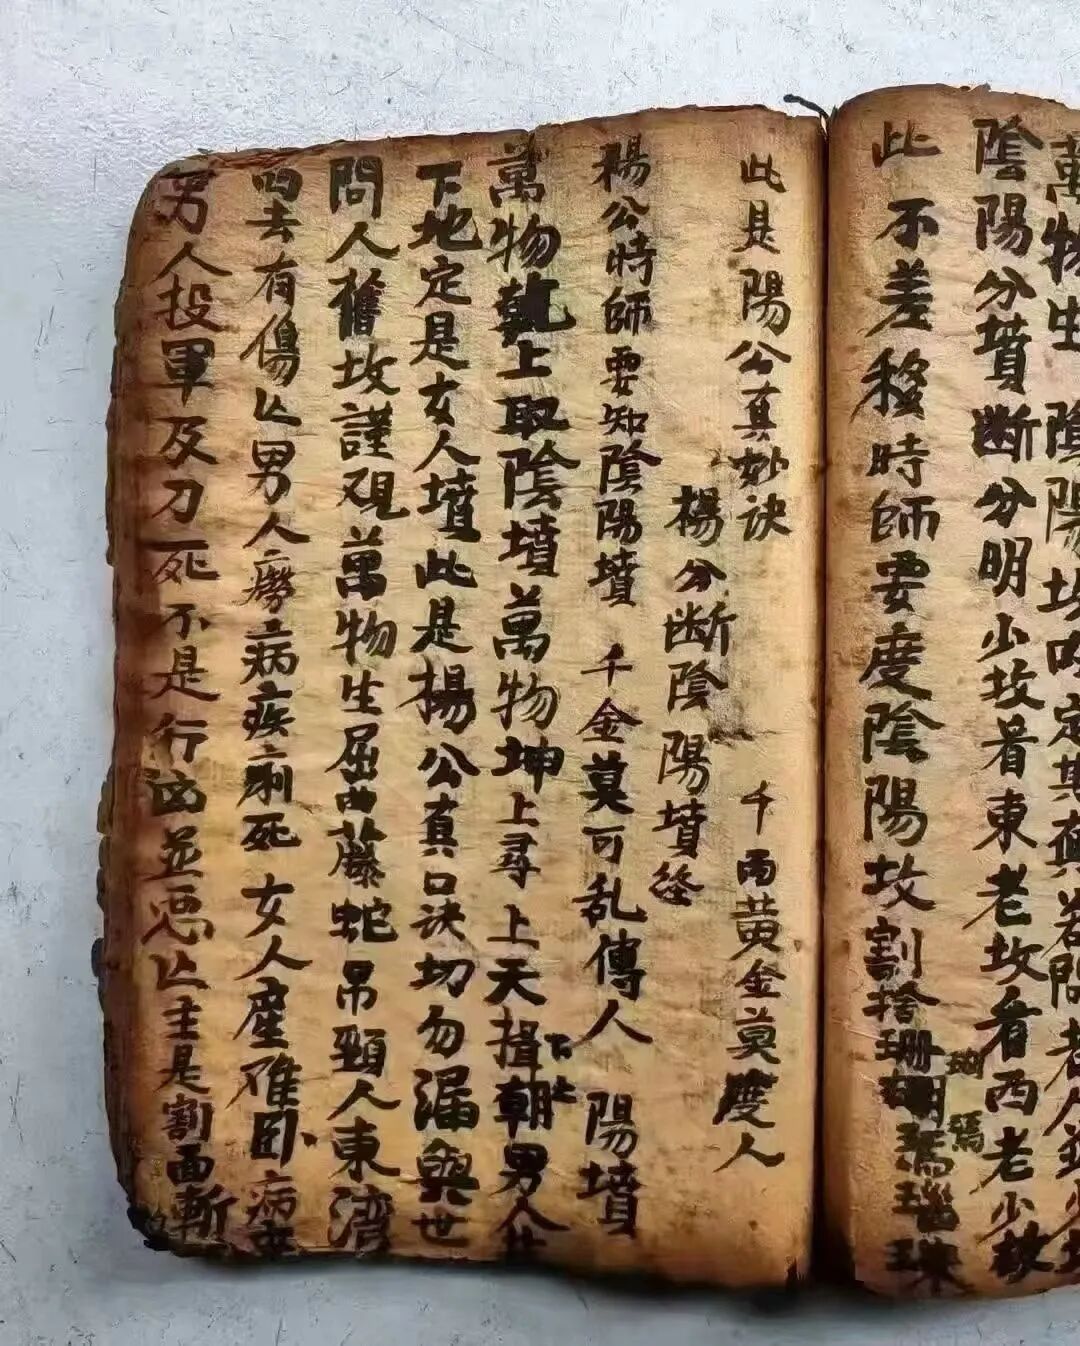 萬物生陰陽坟內定其真若問老
陰陽分墳断分明少坟看東老坟看西老少坟
此不差移時師要度陰陽坟割捨珊瑚瑪瑙珠
瑚
瑪
此是陽公真妙诀 千两黄金莫度人
楊公断陰陽墳
楊公時師要知陰陽墳 千金莫可乱傳人 陽墳
萬物乾上取陰墳萬物坤上尋上天揖朝男人
下上
下地定是女人墳此是楊公真口诀切勿漏與世
問人舊坟謹观萬物生屈曲藤蛇吊頸人東湾
西去有傷亾男人癆病疾痢死女人産难困病
男人投軍及刀死不是行凶並惡亾主是割面斬